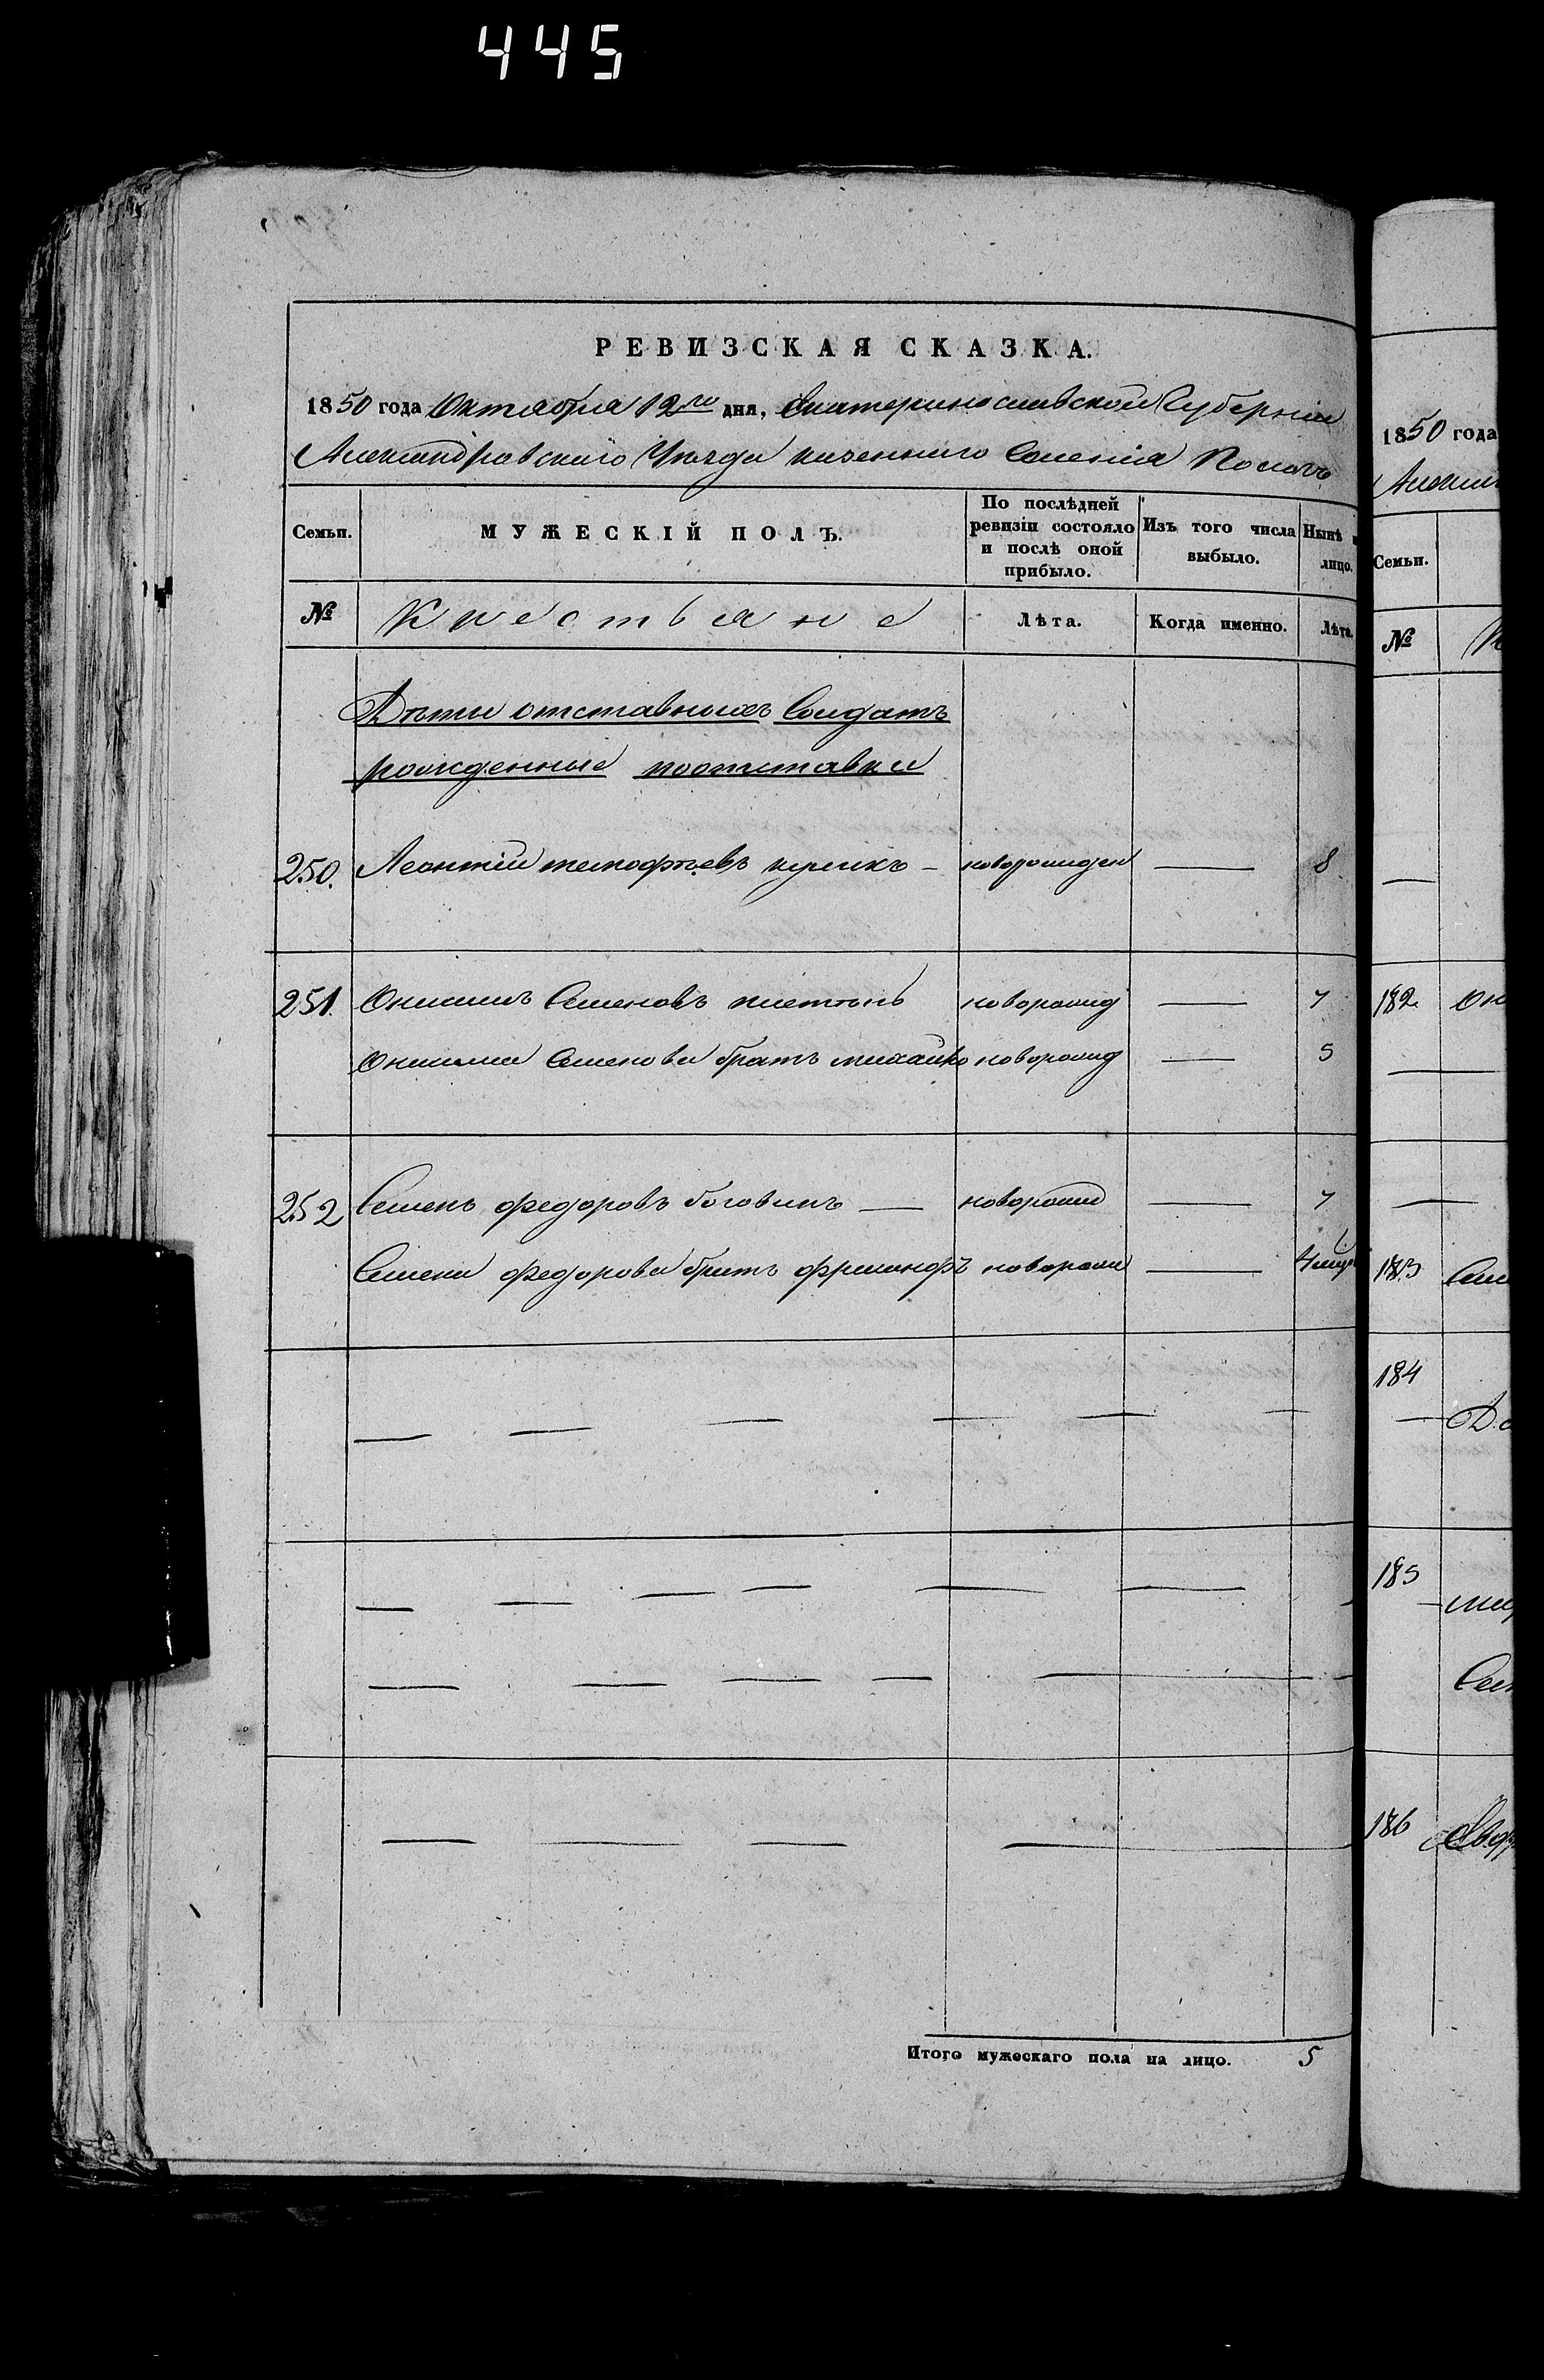 445
РЕВИЗСКАЯ СКАЗКА.
1850 года Октября 12го дня, Екатеринославской Губернии
Александровскаго Уѣзда казеннаго Селенія Пологъ
Семьи. МУЖЕСКІЙ ПОЛЪ. По послѣдней ревизіи состояло и послѣ оной прибыло. Изъ того числа выбыло. Нынѣ н лицо.
№ Крестьяне Лѣта. Когда именно. Лѣта.
Дѣти отставныхъ Солдатъ
рожденные поотставки
250. Леонтій тимофѣевъ куликъ — новорожден — 8
251. Онисимъ Семеновъ новорожд — 7
Онисима Семенова братъ михайло новорожд — 5
252 Семенъ федоровъ боговинъ — новорожд — 7
Семена федорова братъ новорожд — 4
Итого мужескаго пола на лицо. 5
1850 года
Семьи.
№
182 Он
183 Сем
184
185
Сем
186